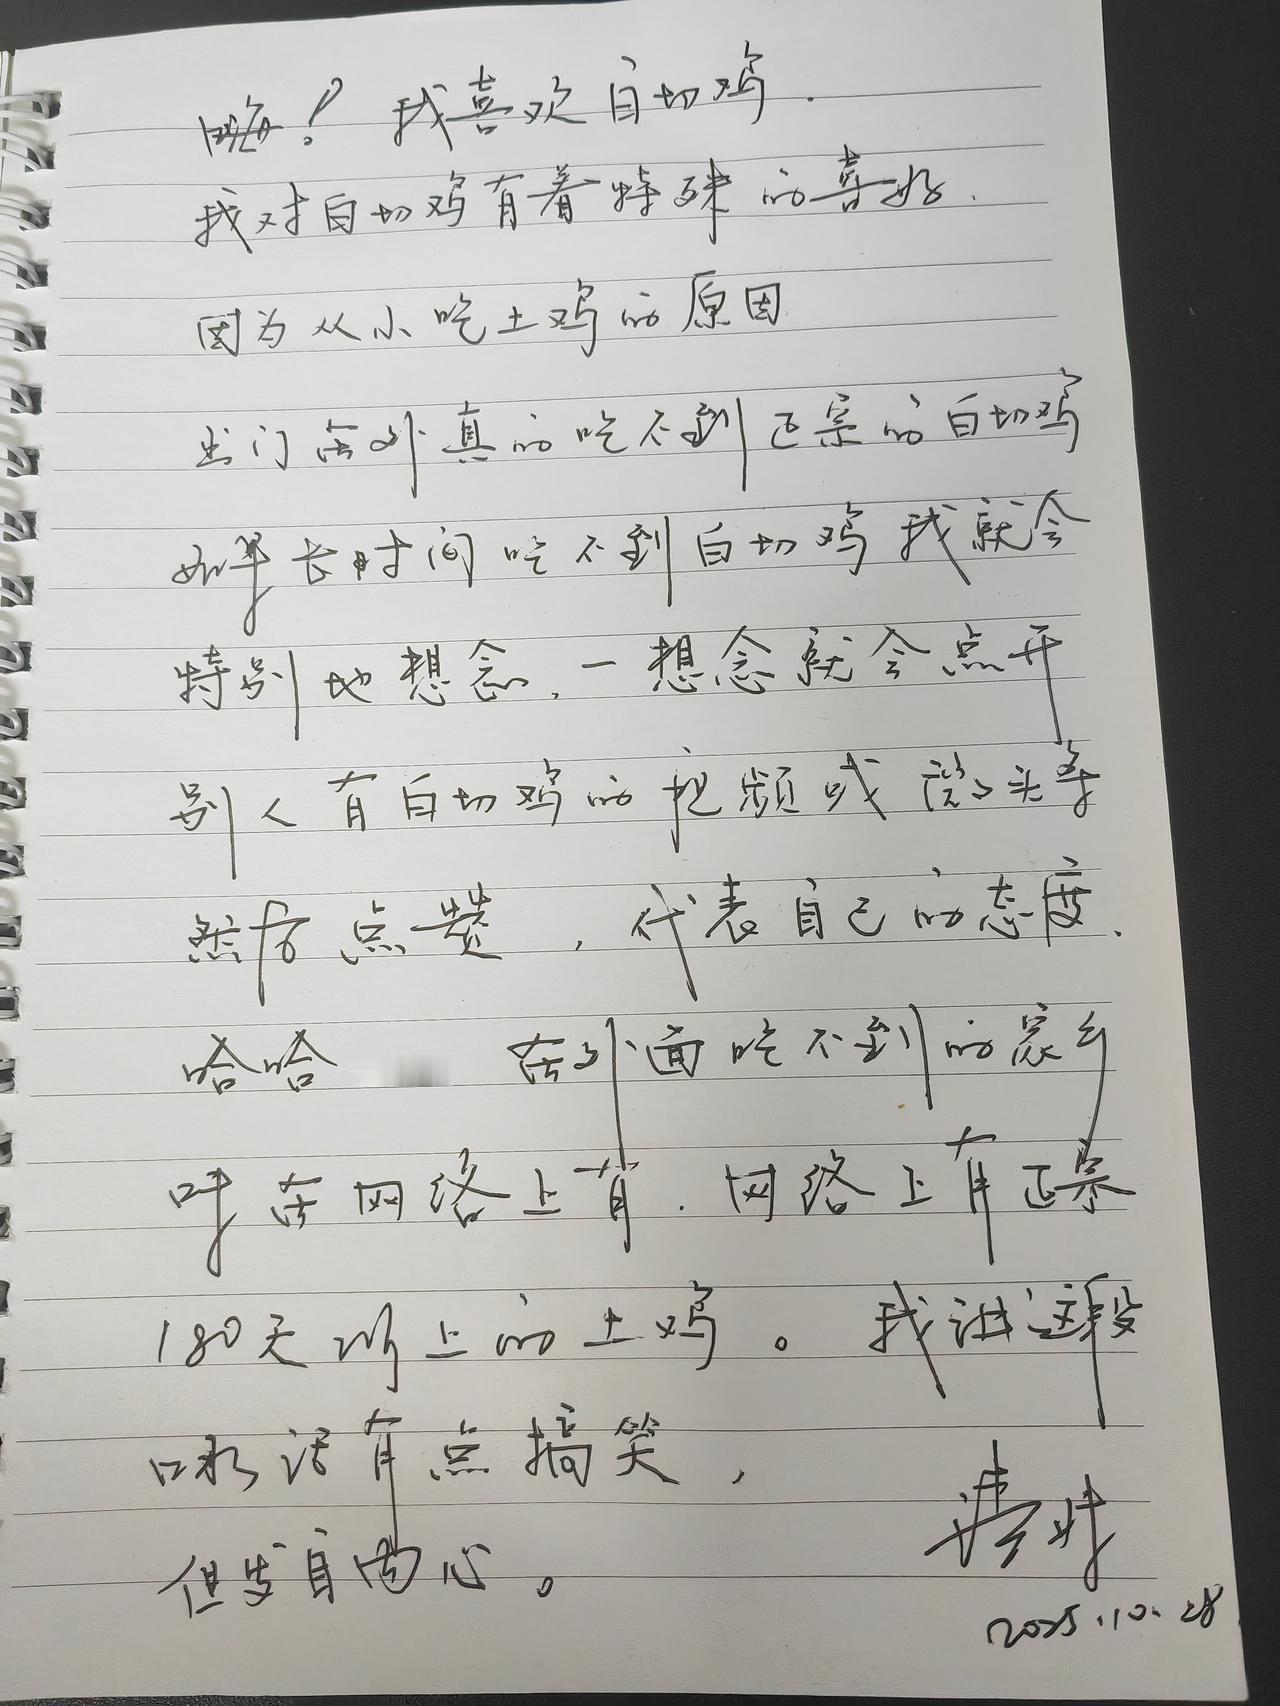 嗨！我喜欢白切鸡．
我对白切鸡有着特殊的喜好．
因为从小吃土鸡的原因
出门在外真的吃不到正宗的白切鸡
如果长时间吃不到白切鸡我就会
特别地想念，一想念就会点开
别人有白切鸡的视频或 头条
然后点赞，代表自己的态度．
哈哈 在外面吃不到的家乡
味在网络上有．网络上有正宗
180天以上的土鸡。我讲这段
口水话有点搞笑，
但发自内心。
2025.10.28